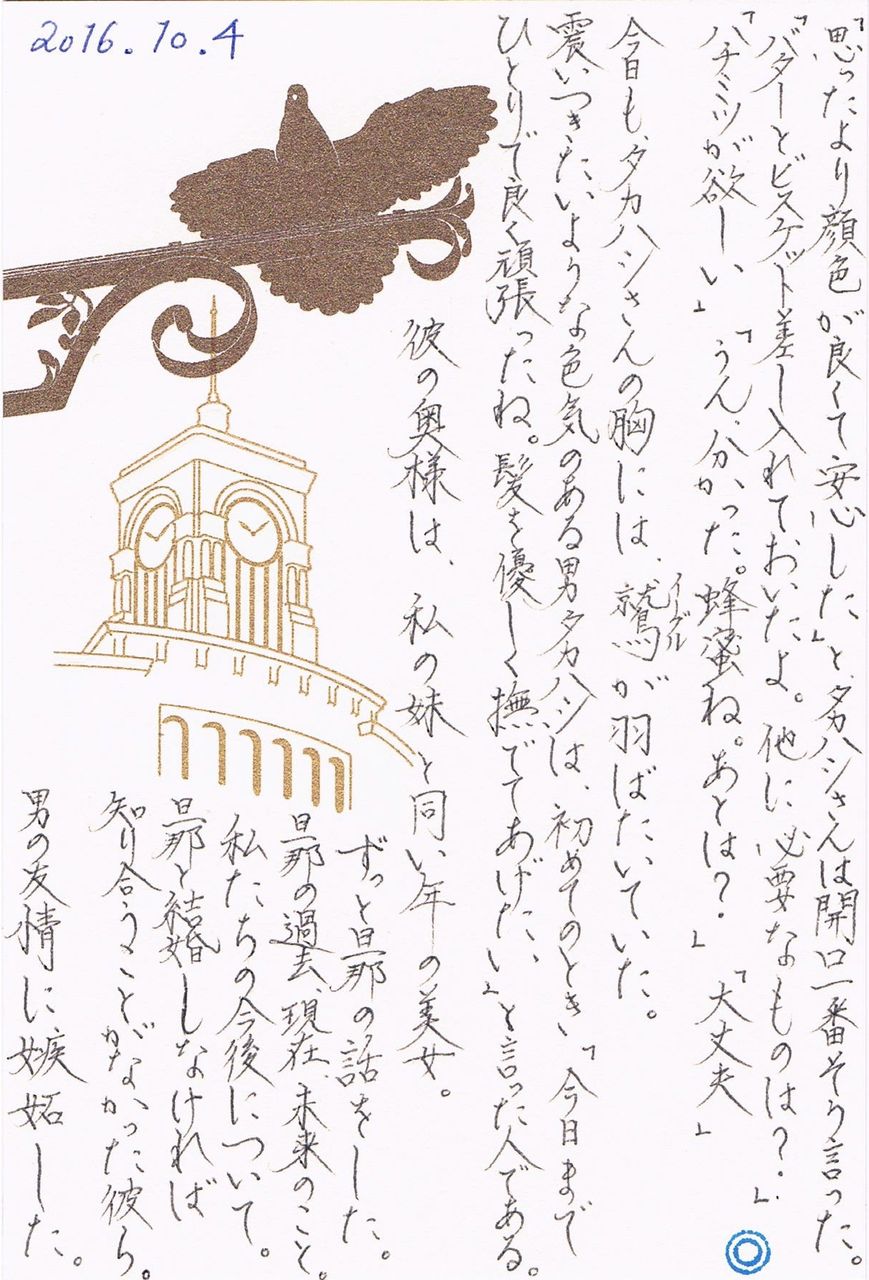 2016.10.4
「思ったより顔色が良くて安心した」と、タカハシさんは開口一番そう言った。
「バターとビスケット差し入れておいたよ。他に必要なものは?」
「ハチミツが欲しい」「うん、分かった。蜂蜜ね。あとは?」「大丈夫」
今日も、タカハシさんの胸には、鷲が羽ばたいていた。
イーグル
震いつきたいような色気のある男タカハシは、初めてのとき、「今日まで
ひとりで良く頑張ったね。髪を優しく撫でてあげたい」と言った人である。
彼の奥様は、私の妹と同い年の美女。
ずっと旦那の話をした。
旦那の過去、現在、未来のこと。
私たちの今後について。
旦那と結婚しなければ
知り合うことがなかった彼ら。
男の友情に嫉妬した。